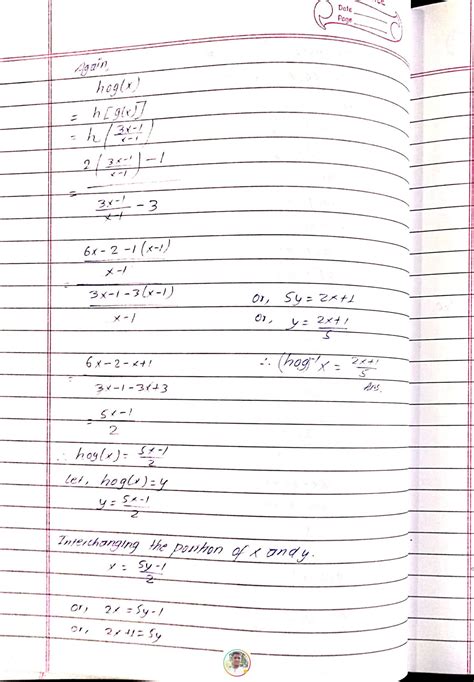 Date
Page
Again,
hog(x)
= h[g(x)]
= h(3x-1/x-1)
= 2(3x-1/x-1) - 1 / 3x-1/x-1 - 3
= 6x-2-1(x-1)/x-1 / 3x-1-3(x-1)/x-1
= 6x-2-x+1 / 3x-1-3x+3
= 5x-1/2
∴ hog(x) = 5x-1/2
Let, hog(x) = y
y = 5x-1/2
Interchanging the position of x and y.
x = 5y-1/2
or, 2x = 5y-1
or, 2x+1 = 5y
or, 5y = 2x+1
or, y = 2x+1/5
∴ (hog)⁻¹x = 2x+1/5
Ans.